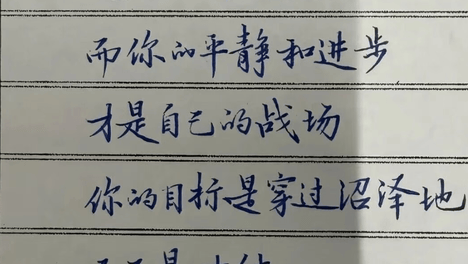 而你的平静和进步
才是自己的战场
你的目标是穿过沼泽地